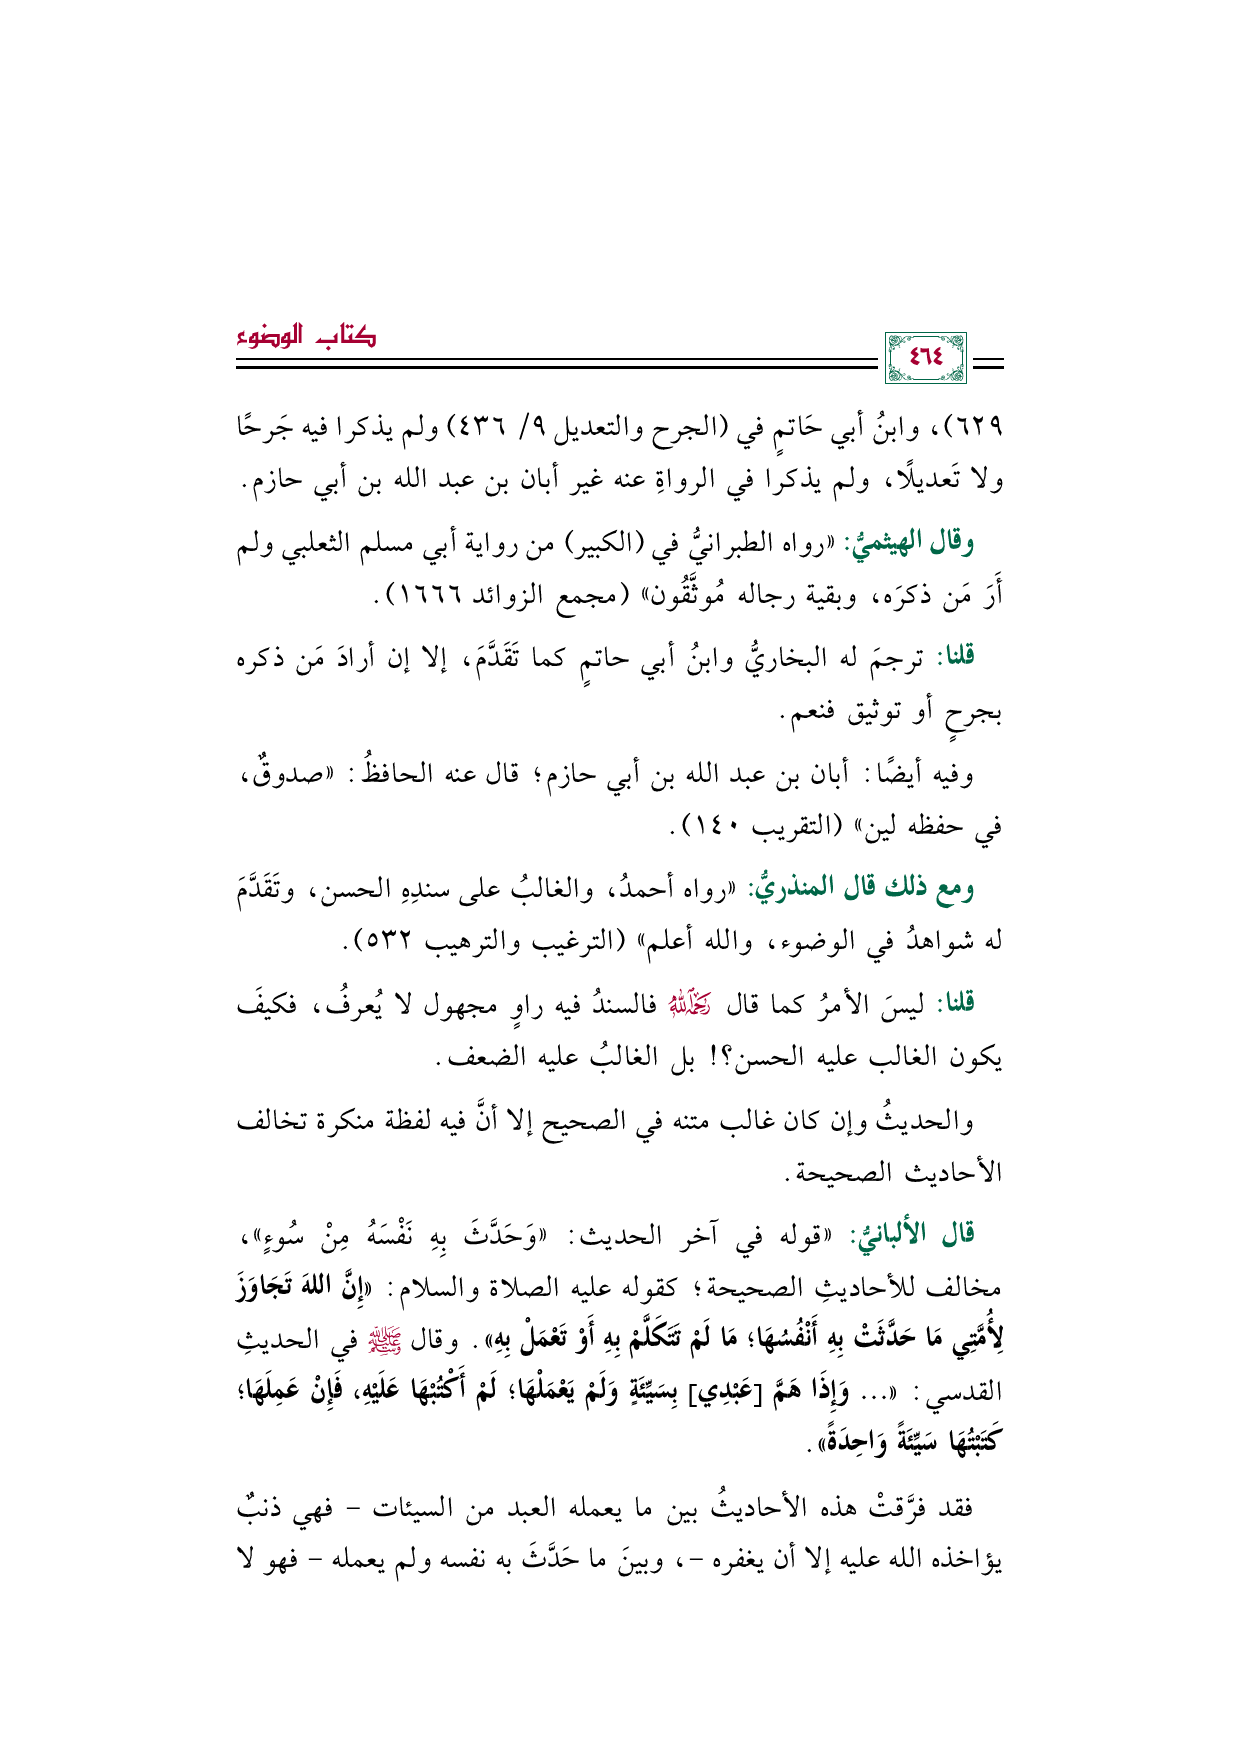 كتاب الوضوء
٤٦٤
٦٢٩)، وابنُ أبي حَاتمٍ في (الجرح والتعديل ٩/ ٤٣٦) ولم يذكرا فيه جَرحًا
ولا تَعديلًا، ولم يذكرا في الرواةِ عنه غير أبان بن عبد الله بن أبي حازم.
وقال الهيثميُّ: «رواه الطبرانيُّ في (الكبير) من رواية أبي مسلم الثعلبي ولم
أَرَ مَن ذكرَه، وبقية رجاله مُوثَّقُون» (مجمع الزوائد ١٦٦٦).
قلنا: ترجمَ له البخاريُّ وابنُ أبي حاتمٍ كما تَقَدَّمَ، إلا إن أرادَ مَن ذكره
بجرحٍ أو توثيق فنعم.
وفيه أيضًا: أبان بن عبد الله بن أبي حازم؛ قال عنه الحافظُ: «صدوقٌ،
في حفظه لين» (التقريب ١٤٠).
ومع ذلك قال المنذريُّ: «رواه أحمدُ، والغالبُ على سندِهِ الحسن، وتَقَدَّمَ
له شواهدُ في الوضوء، والله أعلم» (الترغيب والترهيب ٥٣٢).
قلنا: ليسَ الأمرُ كما قال رحمه الله فالسندُ فيه راوٍ مجهول لا يُعرفُ، فكيفَ
يكون الغالب عليه الحسن؟! بل الغالبُ عليه الضعف.
والحديثُ وإن كان غالب متنه في الصحيح إلا أنَّ فيه لفظة منكرة تخالف
الأحاديث الصحيحة.
قال الألبانيُّ: «قوله في آخر الحديث: «وَحَدَّثَ بِهِ نَفْسَهُ مِنْ سُوءٍ»،
مخالف للأحاديثِ الصحيحة؛ كقوله عليه الصلاة والسلام: «إِنَّ اللهَ تَجَاوَزَ
لِأُمَّتِي مَا حَدَّثَتْ بِهِ أَنْفُسُهَا؛ مَا لَمْ تَتَكَلَّمْ بِهِ أَوْ تَعْمَلْ بِهِ». وقال ﷺ في الحديثِ
القدسي: «... وَإِذَا هَمَّ [عَبْدِي] بِسَيِّئَةٍ وَلَمْ يَعْمَلْهَا؛ لَمْ أَكْتُبْهَا عَلَيْهِ، فَإِنْ عَمِلَهَا؛
كَتَبْتُهَا سَيِّئَةً وَاحِدَةً».
فقد فرَّقتْ هذه الأحاديثُ بين ما يعمله العبد من السيئات – فهي ذنبٌ
يؤاخذه الله عليه إلا أن يغفره –، وبينَ ما حَدَّثَ به نفسه ولم يعمله – فهو لا